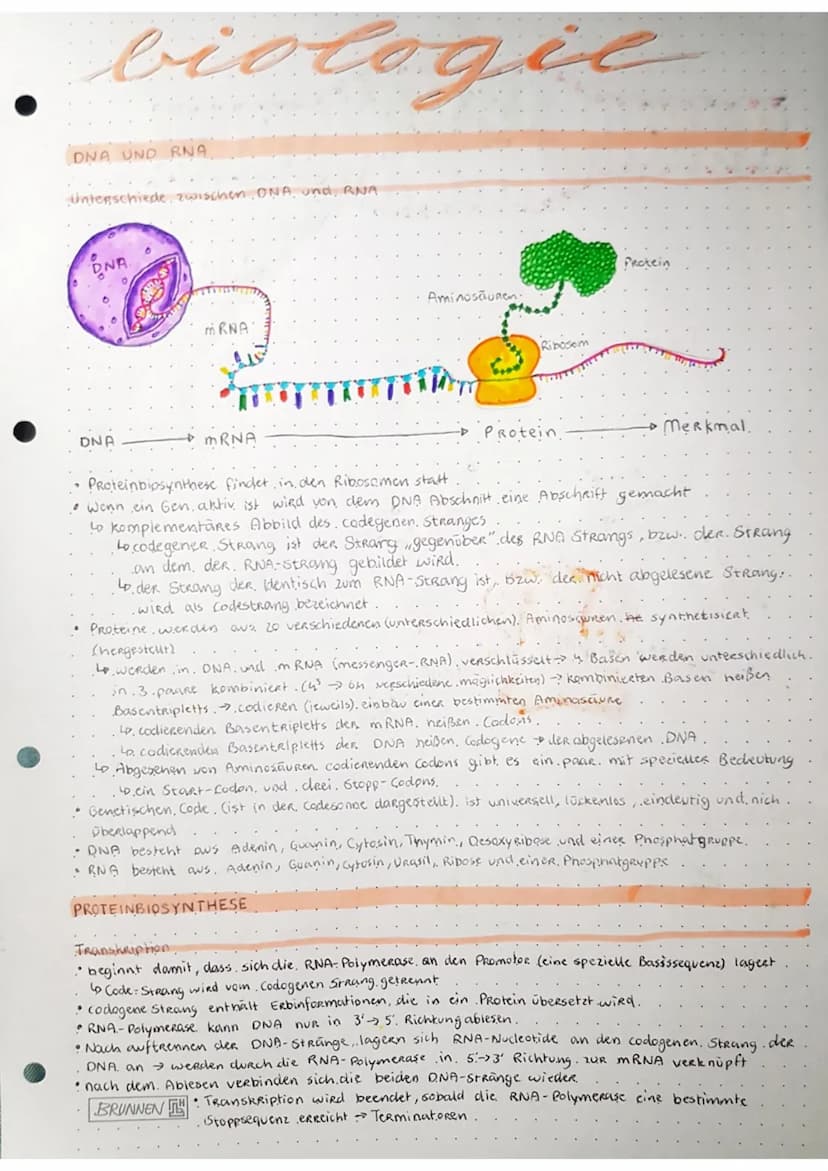 biologie
DNA UND RNA
Unterschiede zwischen DNA und RNA
DNA
Protein
Aminosäuren
mRNA
Ribosom
DNA → mRNA → Protein → Merkmal
• Proteinbiosynthese findet in den Ribosomen statt
• Wenn ein Gen aktiv ist wird von dem DNA Abschnitt eine Abschrift gemacht
↳ komplementäres Abbild des codegenen Stranges
↳ codegener Strang ist der Strang „gegenüber" des RNA Strangs, bzw. der Strang
an dem der RNA-Strang gebildet wird.
↳ der Strang der identisch zum RNA-Strang ist, bzw. der nicht abgelesene Strang
wird als Codestrang bezeichnet
• Proteine werden aus 20 verschiedenen (unterschiedlichen) Aminosäuren synthetisiert
(hergestellt)
↳ werden in DNA und mRNA (messenger-RNA) verschlüsselt → 4 Basen werden unterschiedlich
in 3.paare kombiniert (4³ → 64 verschiedene möglichkeiten) → kombinierten Basen heißen
Basentripletts → codieren (jeweils) einbau einer bestimmten Aminosäure
↳ codierenden Basentripletts der mRNA heißen Codons
↳ codierenden Basentripletts der DNA heißen Codogene → der abgelesenen DNA
↳ Abgesehen von Aminosäuren codierenden Codons gibt es ein paar mit spezieller Bedeutung
↳ ein Start-Codon und drei Stopp-Codons.
• Genetischen Code (ist in der Codesonne dargestellt) ist universell, lückenlos, eindeutig und nich
überlappend
• DNA besteht aus Adenin, Guanin, Cytosin, Thymin, Desoxyribose und einer Phosphatgruppe.
• RNA besteht aus Adenin, Guanin, Cytosin, Urasil, Ribose und einer Phosphatgruppe
PROTEINBIOSYNTHESE
Transkription
• beginnt damit, dass sich die RNA-Polymerase an den Promotor (eine spezielle Basissequenz) lagert
↳ Code-Strang wird vom Codogenen Strang getrennt
• codogene Strang enthält Erbinformationen, die in ein Protein übersetzt wird.
• RNA-Polymerase kann DNA nur in 3'→5' Richtung ablesen.
• Nach auftrennen der DNA-Stränge, lagern sich RNA-Nucleotide an den codogenen Strang der
DNA an → werden durch die RNA-Polymerase in 5'→3' Richtung zur mRNA verknüpft
• nach dem Ablesen verbinden sich die beiden DNA-Stränge wieder
• Transkription wird beendet, sobald die RNA-Polymerase eine bestimmte
BRUNNEN
Stoppsequenz erreicht → Terminatoren